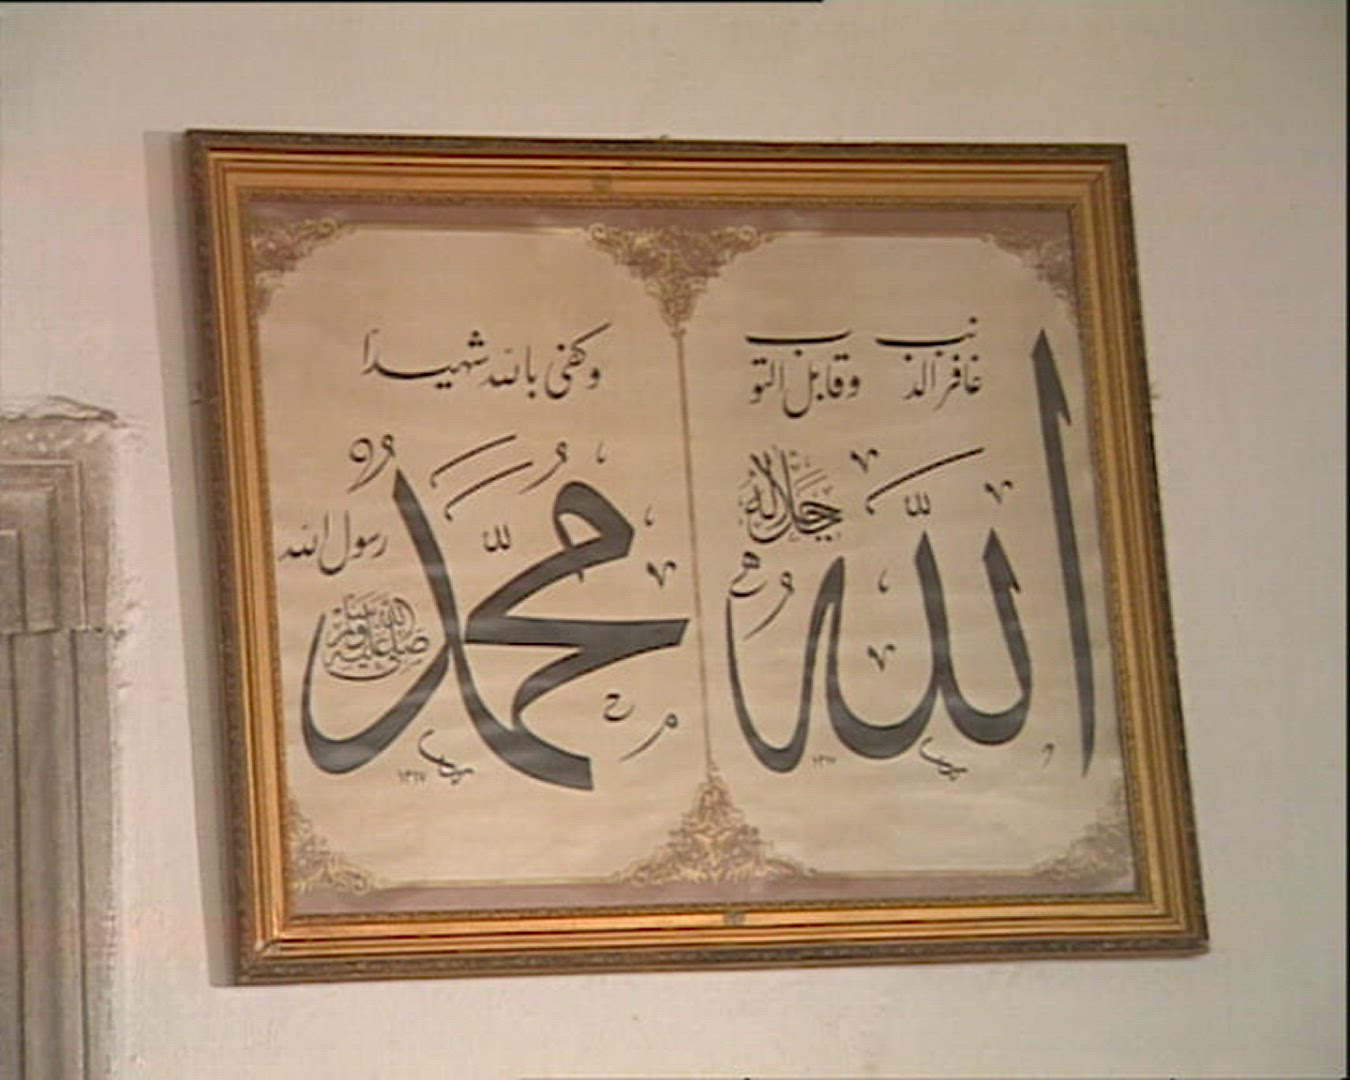 غافر الذنب وقابل التوب
الله
جل جلاله
وكفى بالله شهيداً
محمد
رسول الله
صلى الله عليه وسلم
١٣١٧